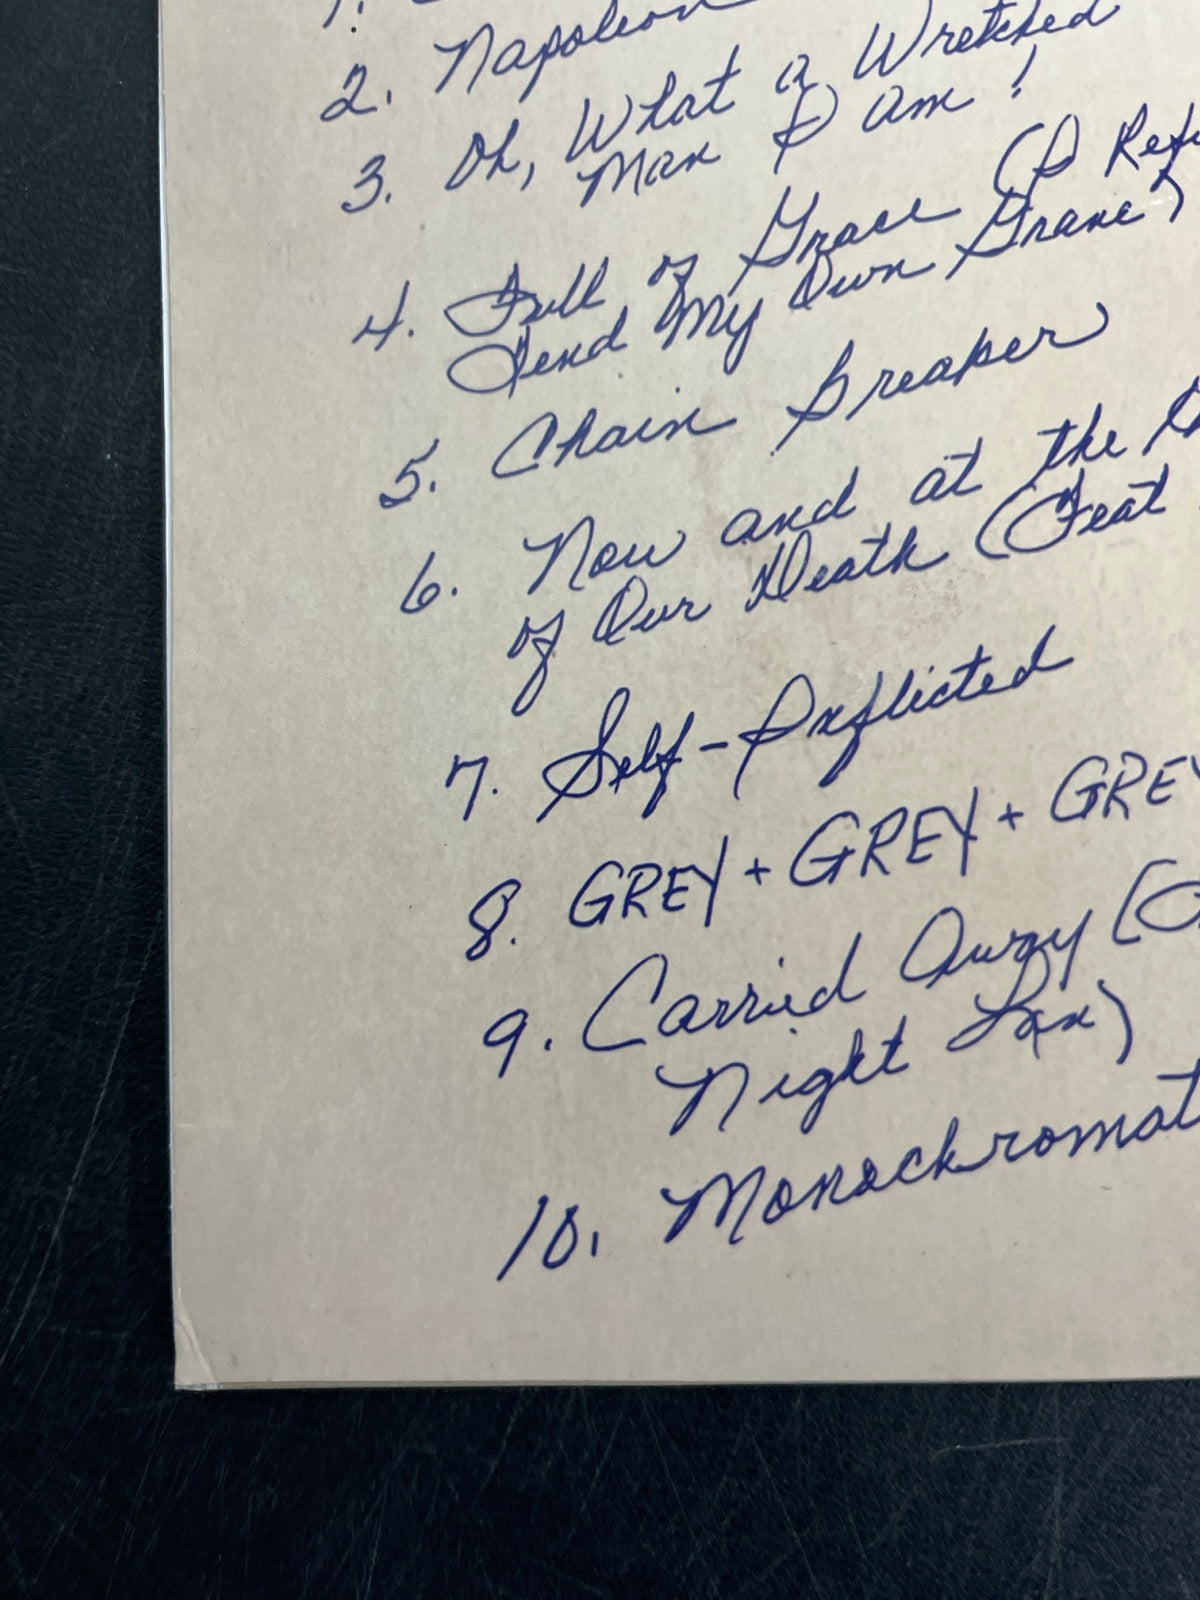 1.
2. Napoleon
3. Oh, What a Wretched
Man I am!
4. Full of Grace (I Refu
Tend My Own Grave)
5. Chain Breaker
6. Now and at the
of Our Death (Feat
7. Self-Inflicted
8. GREY + GREY + GREY
9. Carried Away (
Night Lax)
10. Monochromat